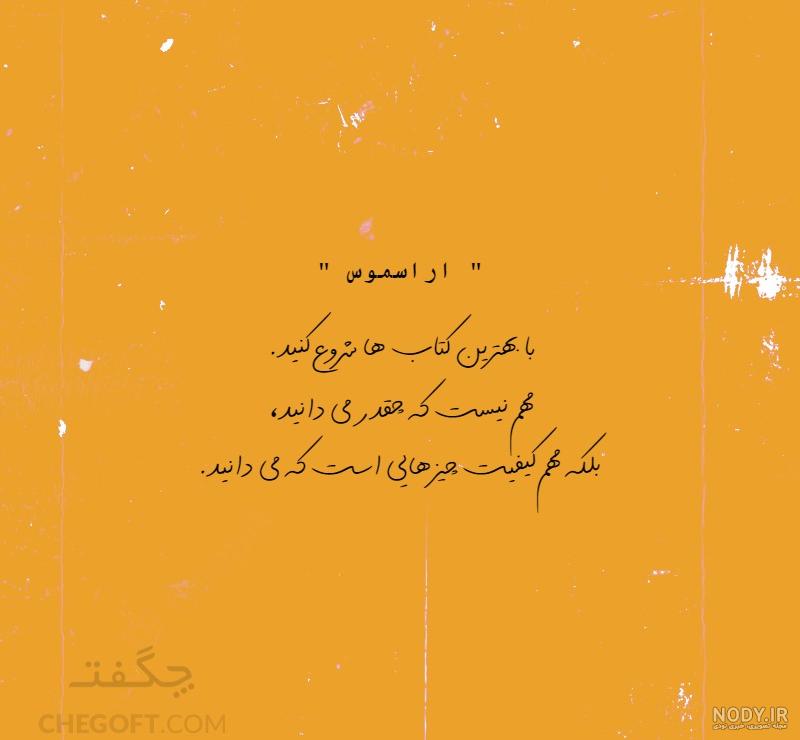 " اراسموس "
با بهترین کتاب ها شروع کنید.
مهم نیست که چقدر می دانید،
بلکه مهم کیفیت چیزهایی است که می دانید.
چگفت
CHEGOFT.COM
NODY.IR
مجله تصویری، خبری نودی